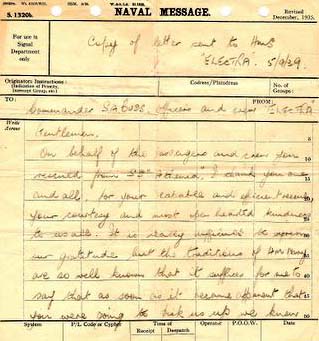 NAVAL MESSAGE.
S. 1320b.
Revised
December, 1935.
For use in
Signal
Department
only
Copy of letter sent to HMS
"ELECTRA. 5/9/39.
Originators Instructions :
(Indication of Priority,
Intercept Group, etc.)
Codress/Plaindress
TO:
Commander S.A. BUSS, Officers and crew "ELECTRA"
Write
Across
Gentlemen.
5
On behalf of the passengers and crew
rescued from SS Athenia. I thank you one
10
and all, for your capable and efficient
your courtesy and most open hearted kindness
15
to us all. It is really
our gratitude, but the traditions of HM Navy
are so well known that it suffices for me to
say that as soon as it became apparent that
you were going to pick us up we knew
System
P/L. Code or Cypher
Time of
Receipt
Despatch
Operator
P.O.O.W.
Date